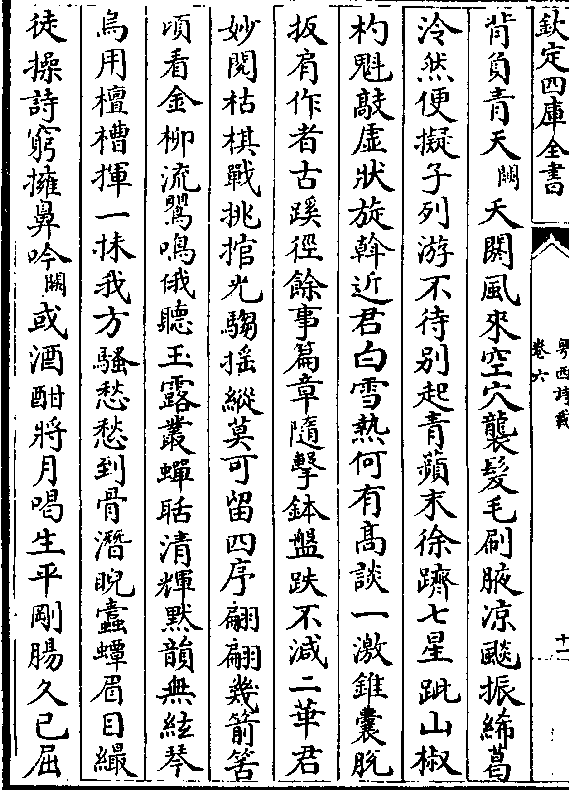 欽定四庫全書
粵西詩載
卷六
十一
背負青天闕天闕風來空穴襲髮毛刷腋凉颷振絺葛
泠然便擬子列游不待别起青蘋末徐躋七星跐山椒
杓魁敲虛狀旋斡近君白雪熱何有高談一激錐囊脫
扳肩作者古蹊徑餘事篇章隨擊鉢盤跌不減二華君
妙閱枯棋戰挑捾光騶摇縱莫可留四序翩翩幾箭筈
頃看金柳流鸎鳴俄聽玉露叢蟬聒清輝黙韻無絃琴
烏用檀槽揮一抹我方騷愁愁到骨潛睨蠧蟫眉目纈
徒操詩窮擁鼻吟闕或酒酣將月喝生平剛腸久已屈